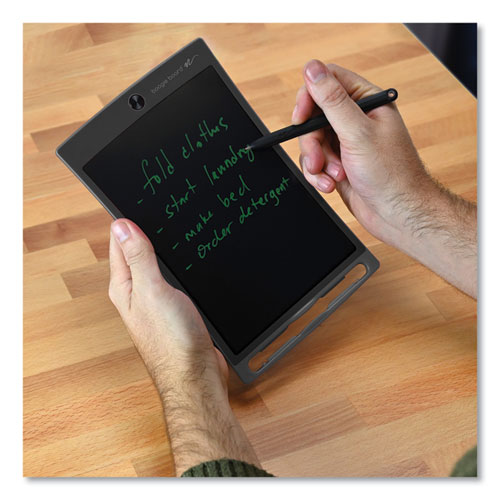 boogie board
- fold clothes
- start laundry
- make bed
- order detergent